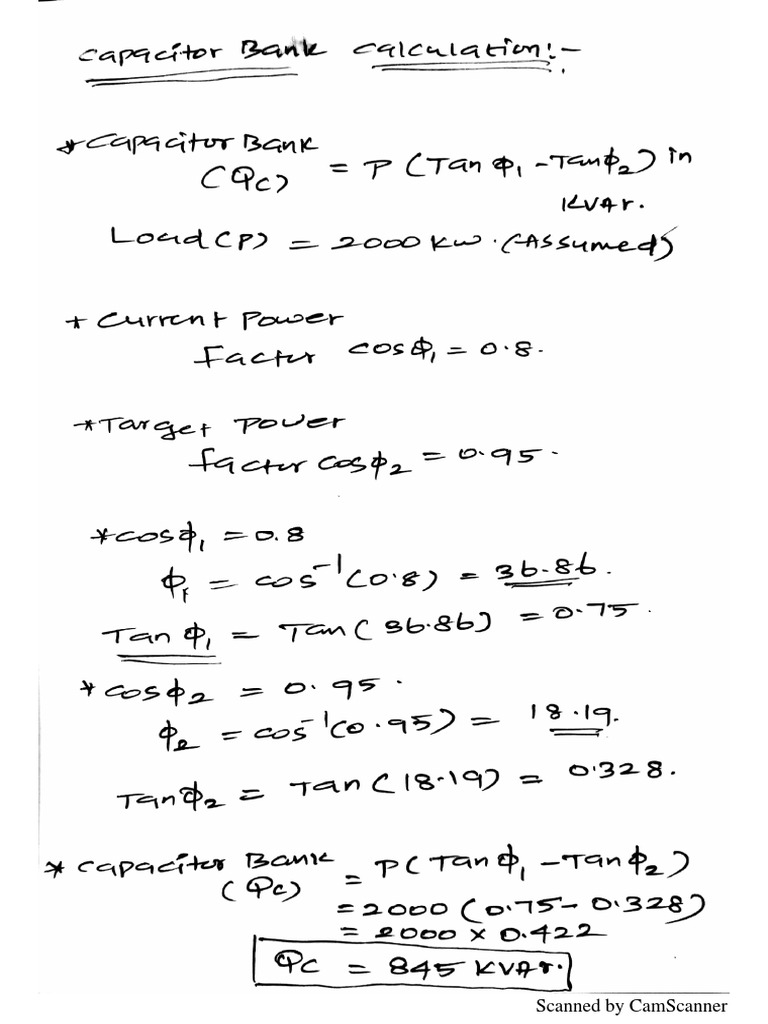 Capacitor Bank Calculation:-
* Capacitor Bank
(Qc) = P (Tan φ₁ - Tan φ₂) in
KVAr.
Load (P) = 2000 KW. (Assumed)
* Current Power
Factor cos φ₁ = 0.8.
* Target Power
factor cos φ₂ = 0.95.
* cos φ₁ = 0.8
φ₁ = cos⁻¹(0.8) = 36.86.
Tan φ₁ = Tan(36.86) = 0.75.
* cos φ₂ = 0.95.
φ₂ = cos⁻¹(0.95) = 18.19.
Tan φ₂ = Tan(18.19) = 0.328.
* Capacitor Bank
(Qc) = P(Tan φ₁ - Tan φ₂)
= 2000 (0.75 - 0.328)
= 2000 × 0.422
Qc = 845 KVAr.
Scanned by CamScanner